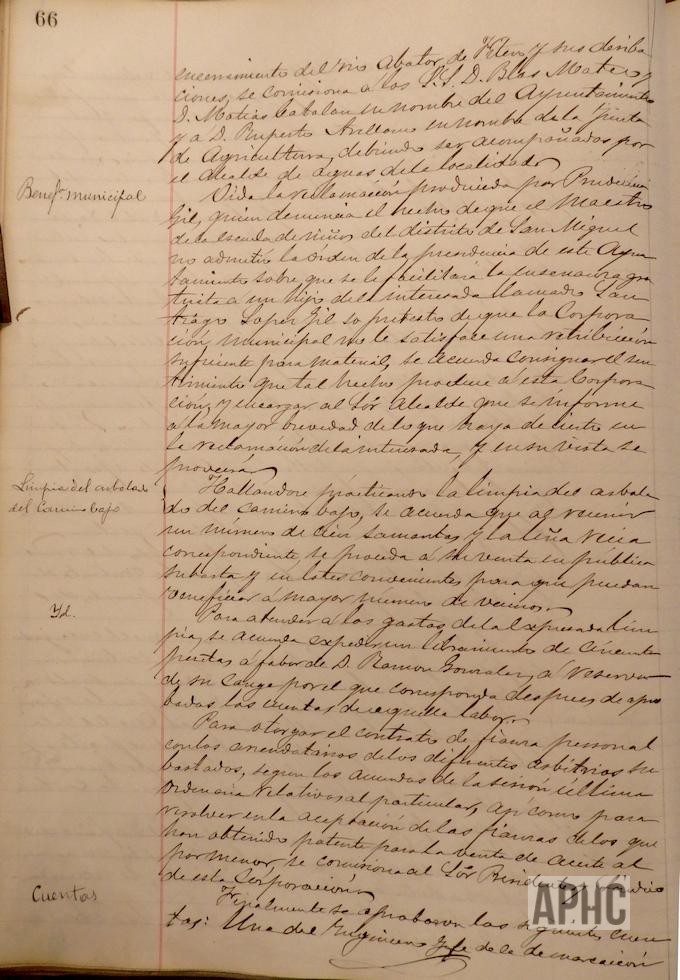 66
encerramiento del rio Abator de y sus deriba
ciones, se comisiona a los S.S. D. Blas Mateo y
D. Matías Cabalan en nombre del Ayuntamiento
y a D. Ruperto Arellano en nombre de la Junta
de Agricultura, debiendo ser acompañados por
el Alcalde de aguas de la localidad
Benefª municipal
Vista la reclamación producida por Prudencia
Gil, quien denuncia el hecho de que el Maestro
de la escuela de niños del distrito de San Miguel
no admitió la órden de la presidencia de este Ayun
tamiento sobre que se le facilitara la enseñanza gra
tuita a un hijo de la interesada llamado San
tiago Soper Gil so pretesto de que la Corpora
ción municipal no le satisface una retribución
suficiente para material, se acuerda consignar el sen
timiento que tal hecho produce a esta Corpora
ción, y encargar al Sór Alcalde que se informe
a la mayor brevedad de lo que haya de cierto en
la reclamación de la interesada, y en su vista se
proveerá
Limpia del arbolado
del Camino bajo
Hallandose practicando la limpia del arbola
do del camino bajo, se acuerda que al reunir
un número de cien samantas y la leña recia
correspondiente se proceda a su venta en pública
subasta y en lotes convenientes para que puedan
beneficiar a mayor numero de vecinos.
Yd.
Para atender a los gastos de la expresada lim
pia, se acuerda expedir un libramiento de cincuenta
pesetas á fabor de D. Ramon Gonzalez, á reserva
de su cange por el que corresponda despues de apro
badas las cuentas de aquella labor.
Para otorgar el contrato de fianza personal
con los arrendatarios de los diferentes arbitrios su
bastados, segun los acuerdos de la sesion última
ordinaria relativos al particular, asi como para
resolver en la aceptación de las fianzas de los que
han obtenido patente para la venta de aceite al
por menor, se comisiona al Sór Presidente y Sindico
de esta Corporación
Cuentas
Finalmente se aprobaron las siguientes cuen
tas: Una del Ingeniero Jefe de la demarcación
APHC